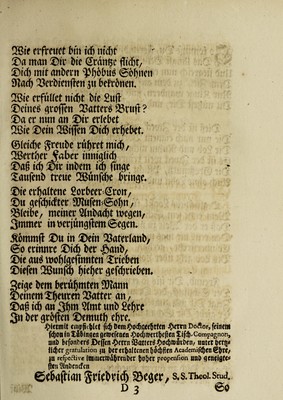 Wie erfreuet bin ich nicht
Da man Dir die Cräntze flicht,
Dich mit andern Phöbus Söhnen
Nach Verdiensten zu bekrönen.
Wie erfüllet nicht die Lust
Deines grossen Vatters Brust?
Da er nun an Dir erlebet
Wie Dein Wissen Dich erhebet.
Gleiche Freude rühret mich,
Werther Faber inniglich
Daß ich Dir indem ich singe
Tausend treue Wünsche bringe.
Die erhaltene Lorbeer-Cron,
Du geschickter Musen-Sohn,
Bleibe, meiner Andacht wegen,
Immer in verjüngstem Seegen.
Kömmst Du in Dein Vaterland,
So erinnre Dich der Hand,
Die aus wohlgesinnten Trieben
Diesen Wunsch hieher geschrieben.
Zeige dem berühmten Mann
Deinem Theuren Vatter an,
Daß ich an Ihm Amt und Lehre
In der grösten Demuth ehre.
Hiermit empfiehlet sich dem Hochgeehrten Herrn Doctor, seinem
schon in Tübingen gewesnen Hochwerthesten Tisch-Compagnon,
und besonders Dessen Herrn Vatters Hochwürden, unter herz-
licher gratulation zu der erhaltenen höchsten Academischen Ehre,
zu respective immerwährender hoher propension und geneigte-
sten Andencken
Sebastian Friedrich Beger, S. S. Theol. Stud.
D 3 So